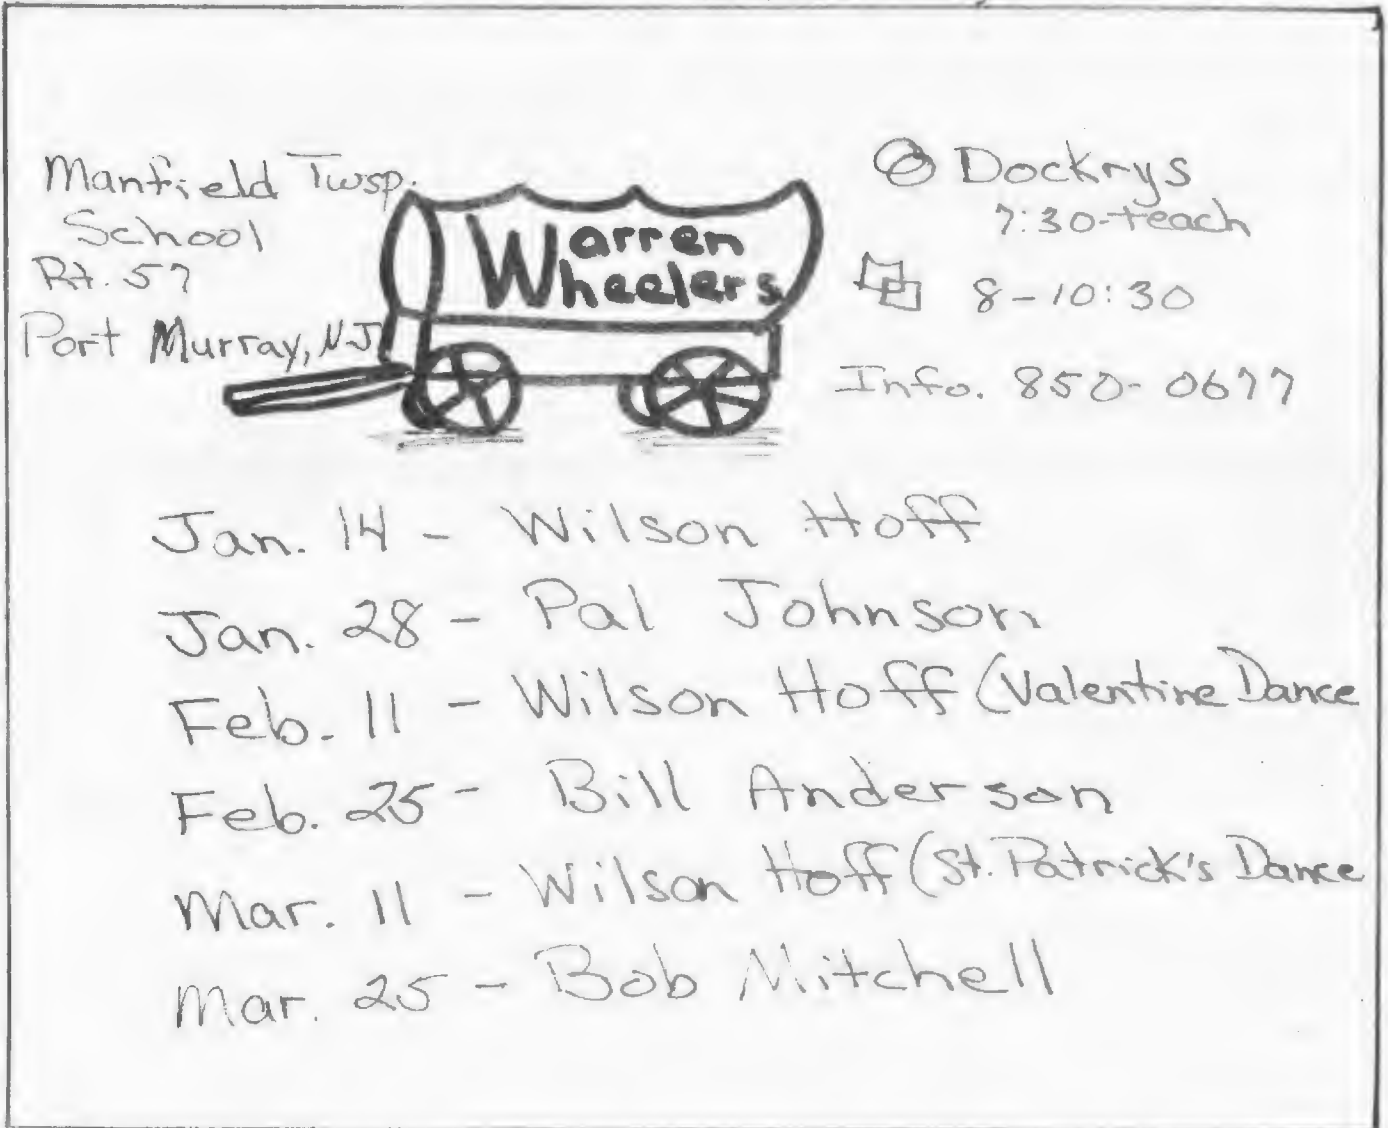 Manfield Twsp.
School
Rt. 57
Port Murray, NJ
Warren
Wheelers
Dockrys
7:30-teach
8-10:30
Info. 850-0677
Jan. 14 - Wilson Hoff
Jan. 28 - Pal Johnson
Feb. 11 - Wilson Hoff (Valentine Dance
Feb. 25 - Bill Anderson
Mar. 11 - Wilson Hoff (St. Patrick's Dance
Mar. 25 - Bob Mitchell